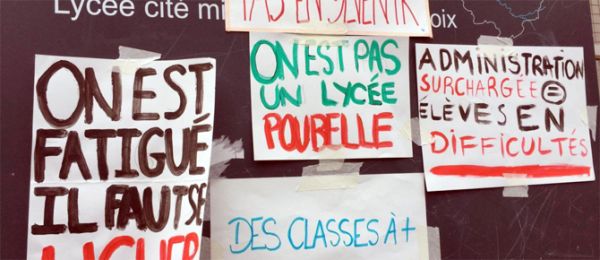 Lycée cité mi
oix
PAS EN
ON EST
FATIGUÉ
IL FAUT SE
LIGUER
ON EST PAS
UN LYCÉE
POUBELLE
ADMINISTRATION
SURCHARGÉE =
ÉLÈVES EN
DIFFICULTÉS
DES CLASSES À +